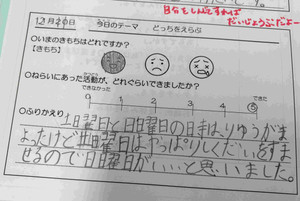 自分をしんじすれば
だいじょうぶだよー
12月20日 今日のテーマ どっちをえらぶ
○いまのきもちはどれですか?
【きもち】
○ねらいにあった活動が、どれぐらいできましたか?
できなかった できた
0 1 2 3 4 5
○ふりかえり
土曜日と日曜日の時は、りゆうがま
よったけど土曜日はやっぱりしくだいをすま
せるので日曜日がいいと思いました。